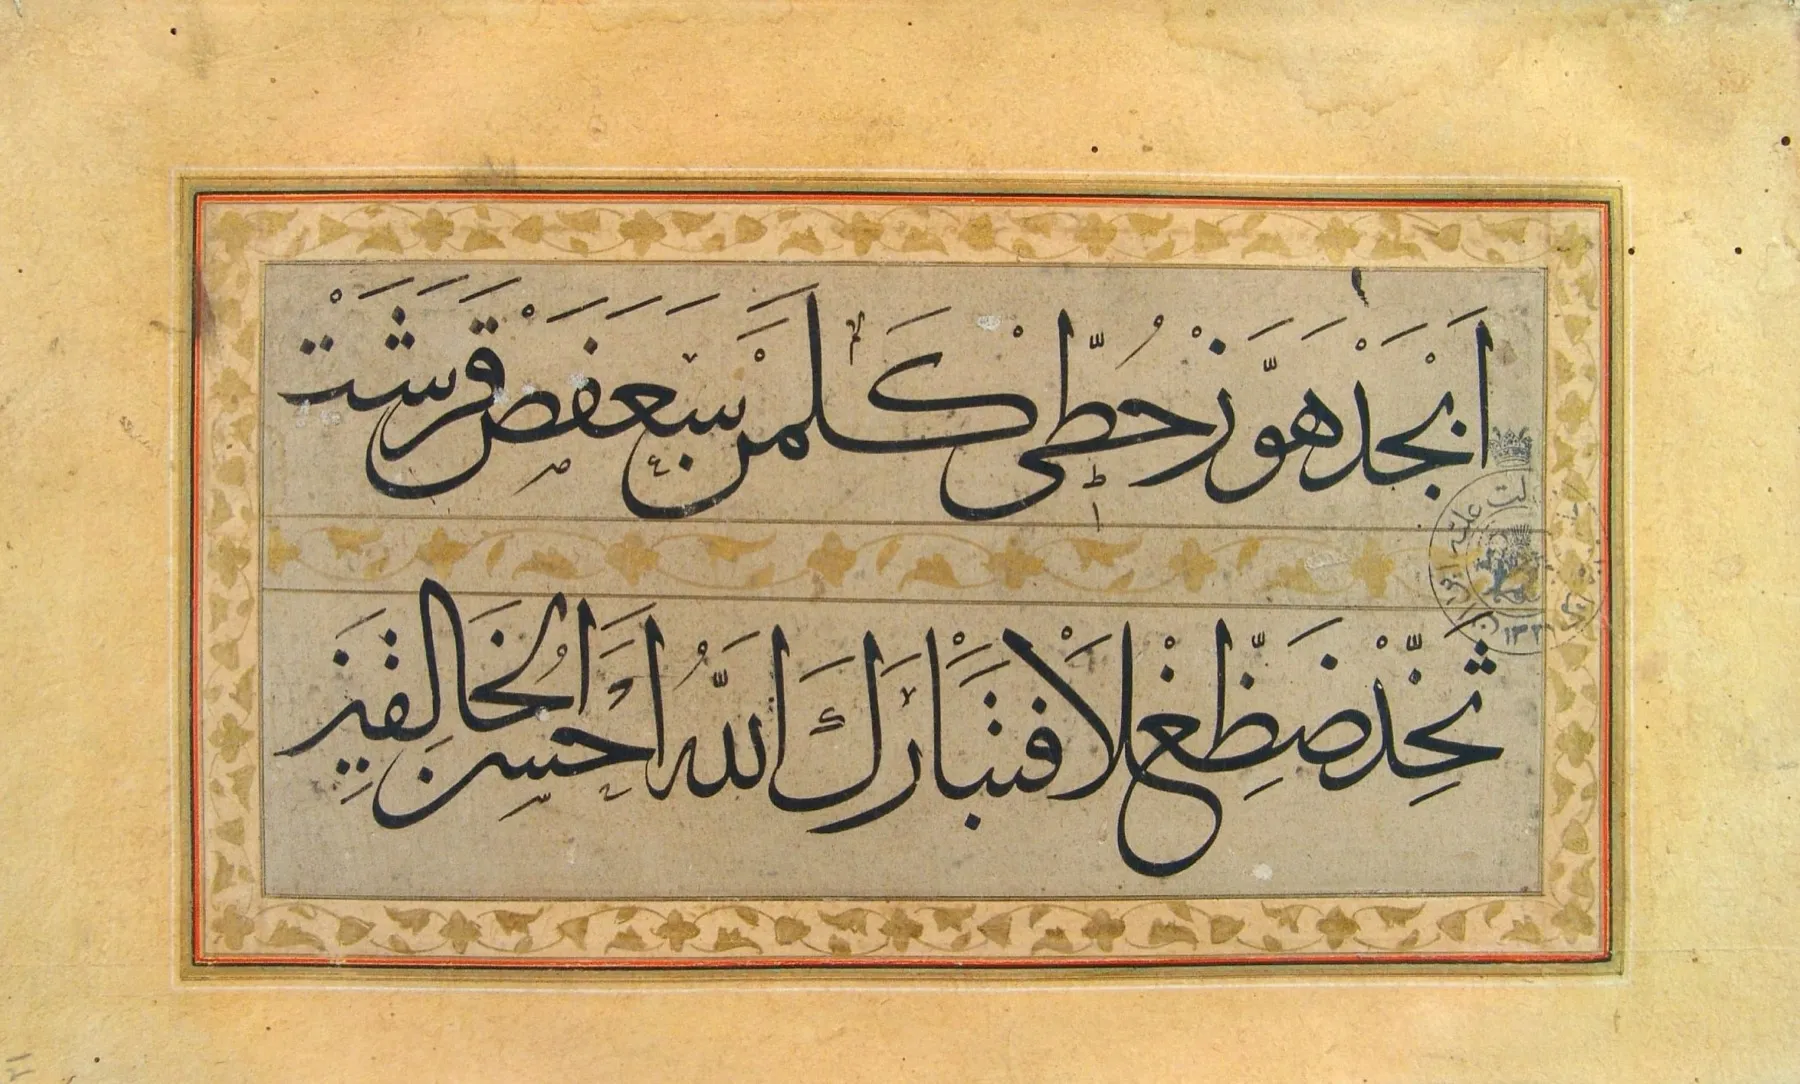 اَبْجَدْ هَوَّزْ حُطِّىْ كَلَمَنْ سَعَفَصْ قَرَشَتْ
ثَخِّذْ ضَظِّغْ لَا فَتَبَارَكَ اللّٰهُ اَحْسَنُ الْخَالِقِيْنَ